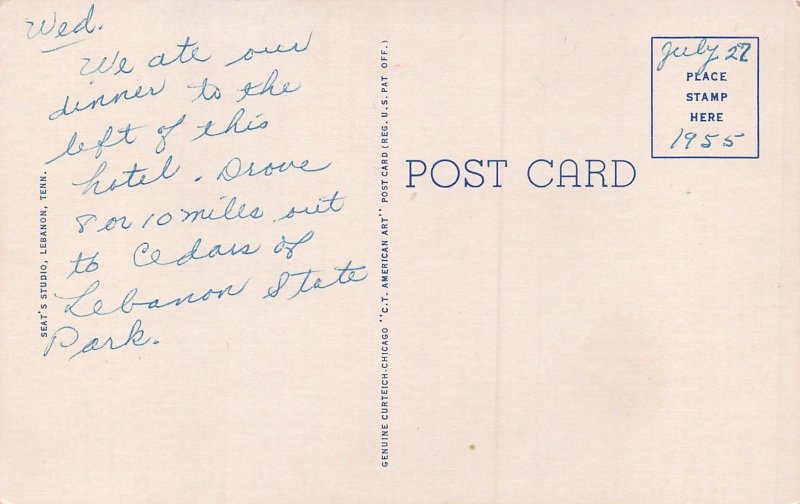 Wed.
We ate our
dinner to the
left of this
hotel. Drove
8 or 10 miles out
to Cedars of
Lebanon State
Park.
SEAT'S STUDIO, LEBANON, TENN.
GENUINE CURTEICH-CHICAGO "C.T. AMERICAN ART" POST CARD (REG. U.S. PAT. OFF.)
POST CARD
July 27
PLACE
STAMP
HERE
1955